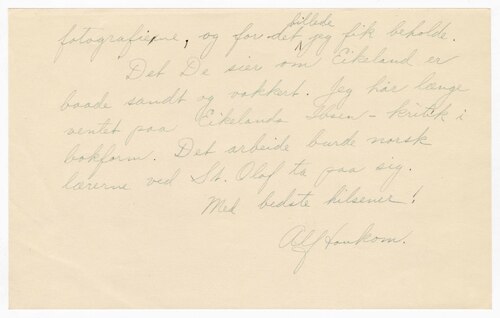 fotografierne, og for det billede jeg fik beholde.
Det De sier om Eikeland er
baade sandt og vakkert. Jeg har længe
ventet paa Eikelands Ibsen-kritik i
bokform. Det arbeide burde norsk
lærerne ved St. Olaf ta paa sig.
Med bedste hilsener!
Alf Houkom.